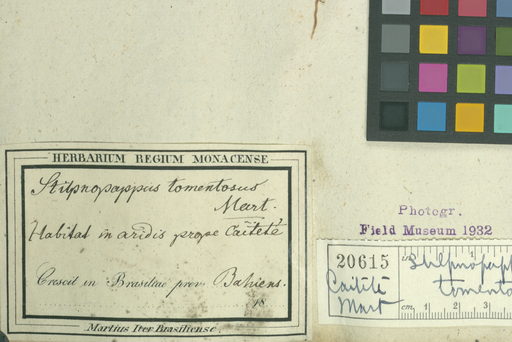 HERBARIUM REGIUM MONACENSE
Stilpnopappus tomentosus
Mart.
Habitat in aridis prope Caiteté
Crescit in Brasiliae prov. Bahiens.
18
Martius Iter Brasiliense.
Photogr.
Field Museum 1932
20615
Stilpnopapp
Caitité
tomento
Mart
cm. 1 2 3